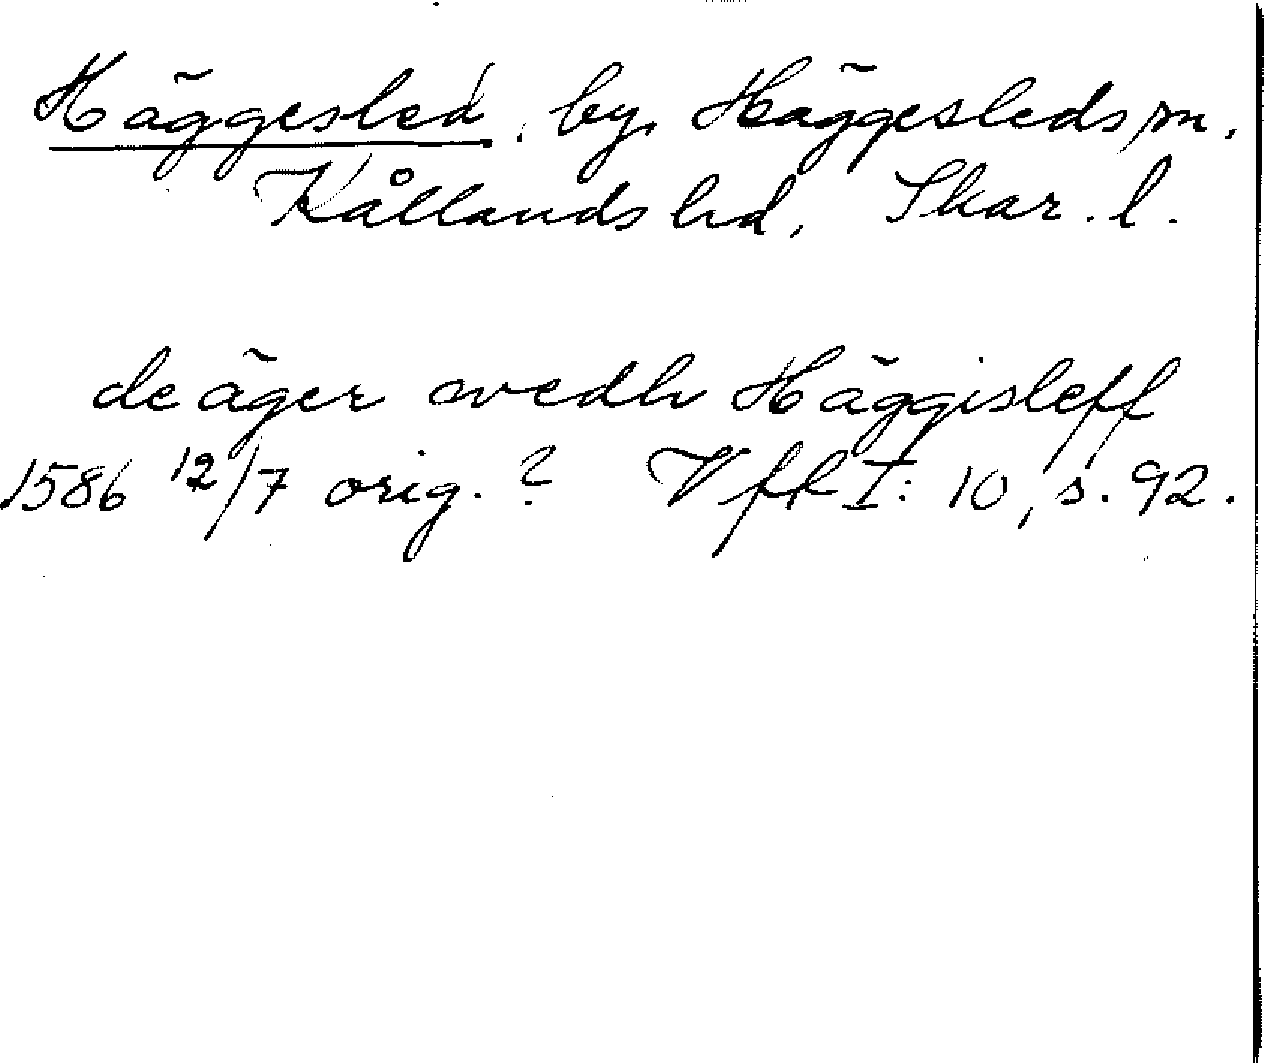 Häggesled, by, Häggesleds sn.
Kållands hd, Skar. l.
de äger wedh Häggisleff
1586 12/7 orig. ? Vfft I: 10, s. 92.